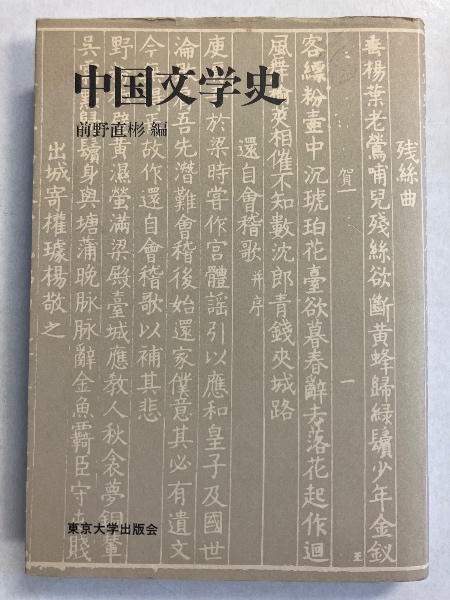 中国文学史
前野直彬 編
残絲曲
垂楊葉老鶯哺兒殘絲欲斷黃蜂歸緑鬢少年金釵
賀一
一
王
客縹粉壷中沉琥珀花臺欲暮春辭去落花起作迴
風舞榆莢相催不知數沈郎青錢夾城路
還自會稽歌 并序
庾 於梁時嘗作宮體謡引以應和皇子及國世
淪 吾先潛難會稽後始還家僕意其必有遺文
今 故作還自會稽歌以補其悲
野 黃濕螢滿梁殿臺城應教人秋衾夢銅輦
吳 鬢身與塘蒲晚脉脉辭金魚羈臣守 賤
出城寄權璩楊敬之
東京大学出版会